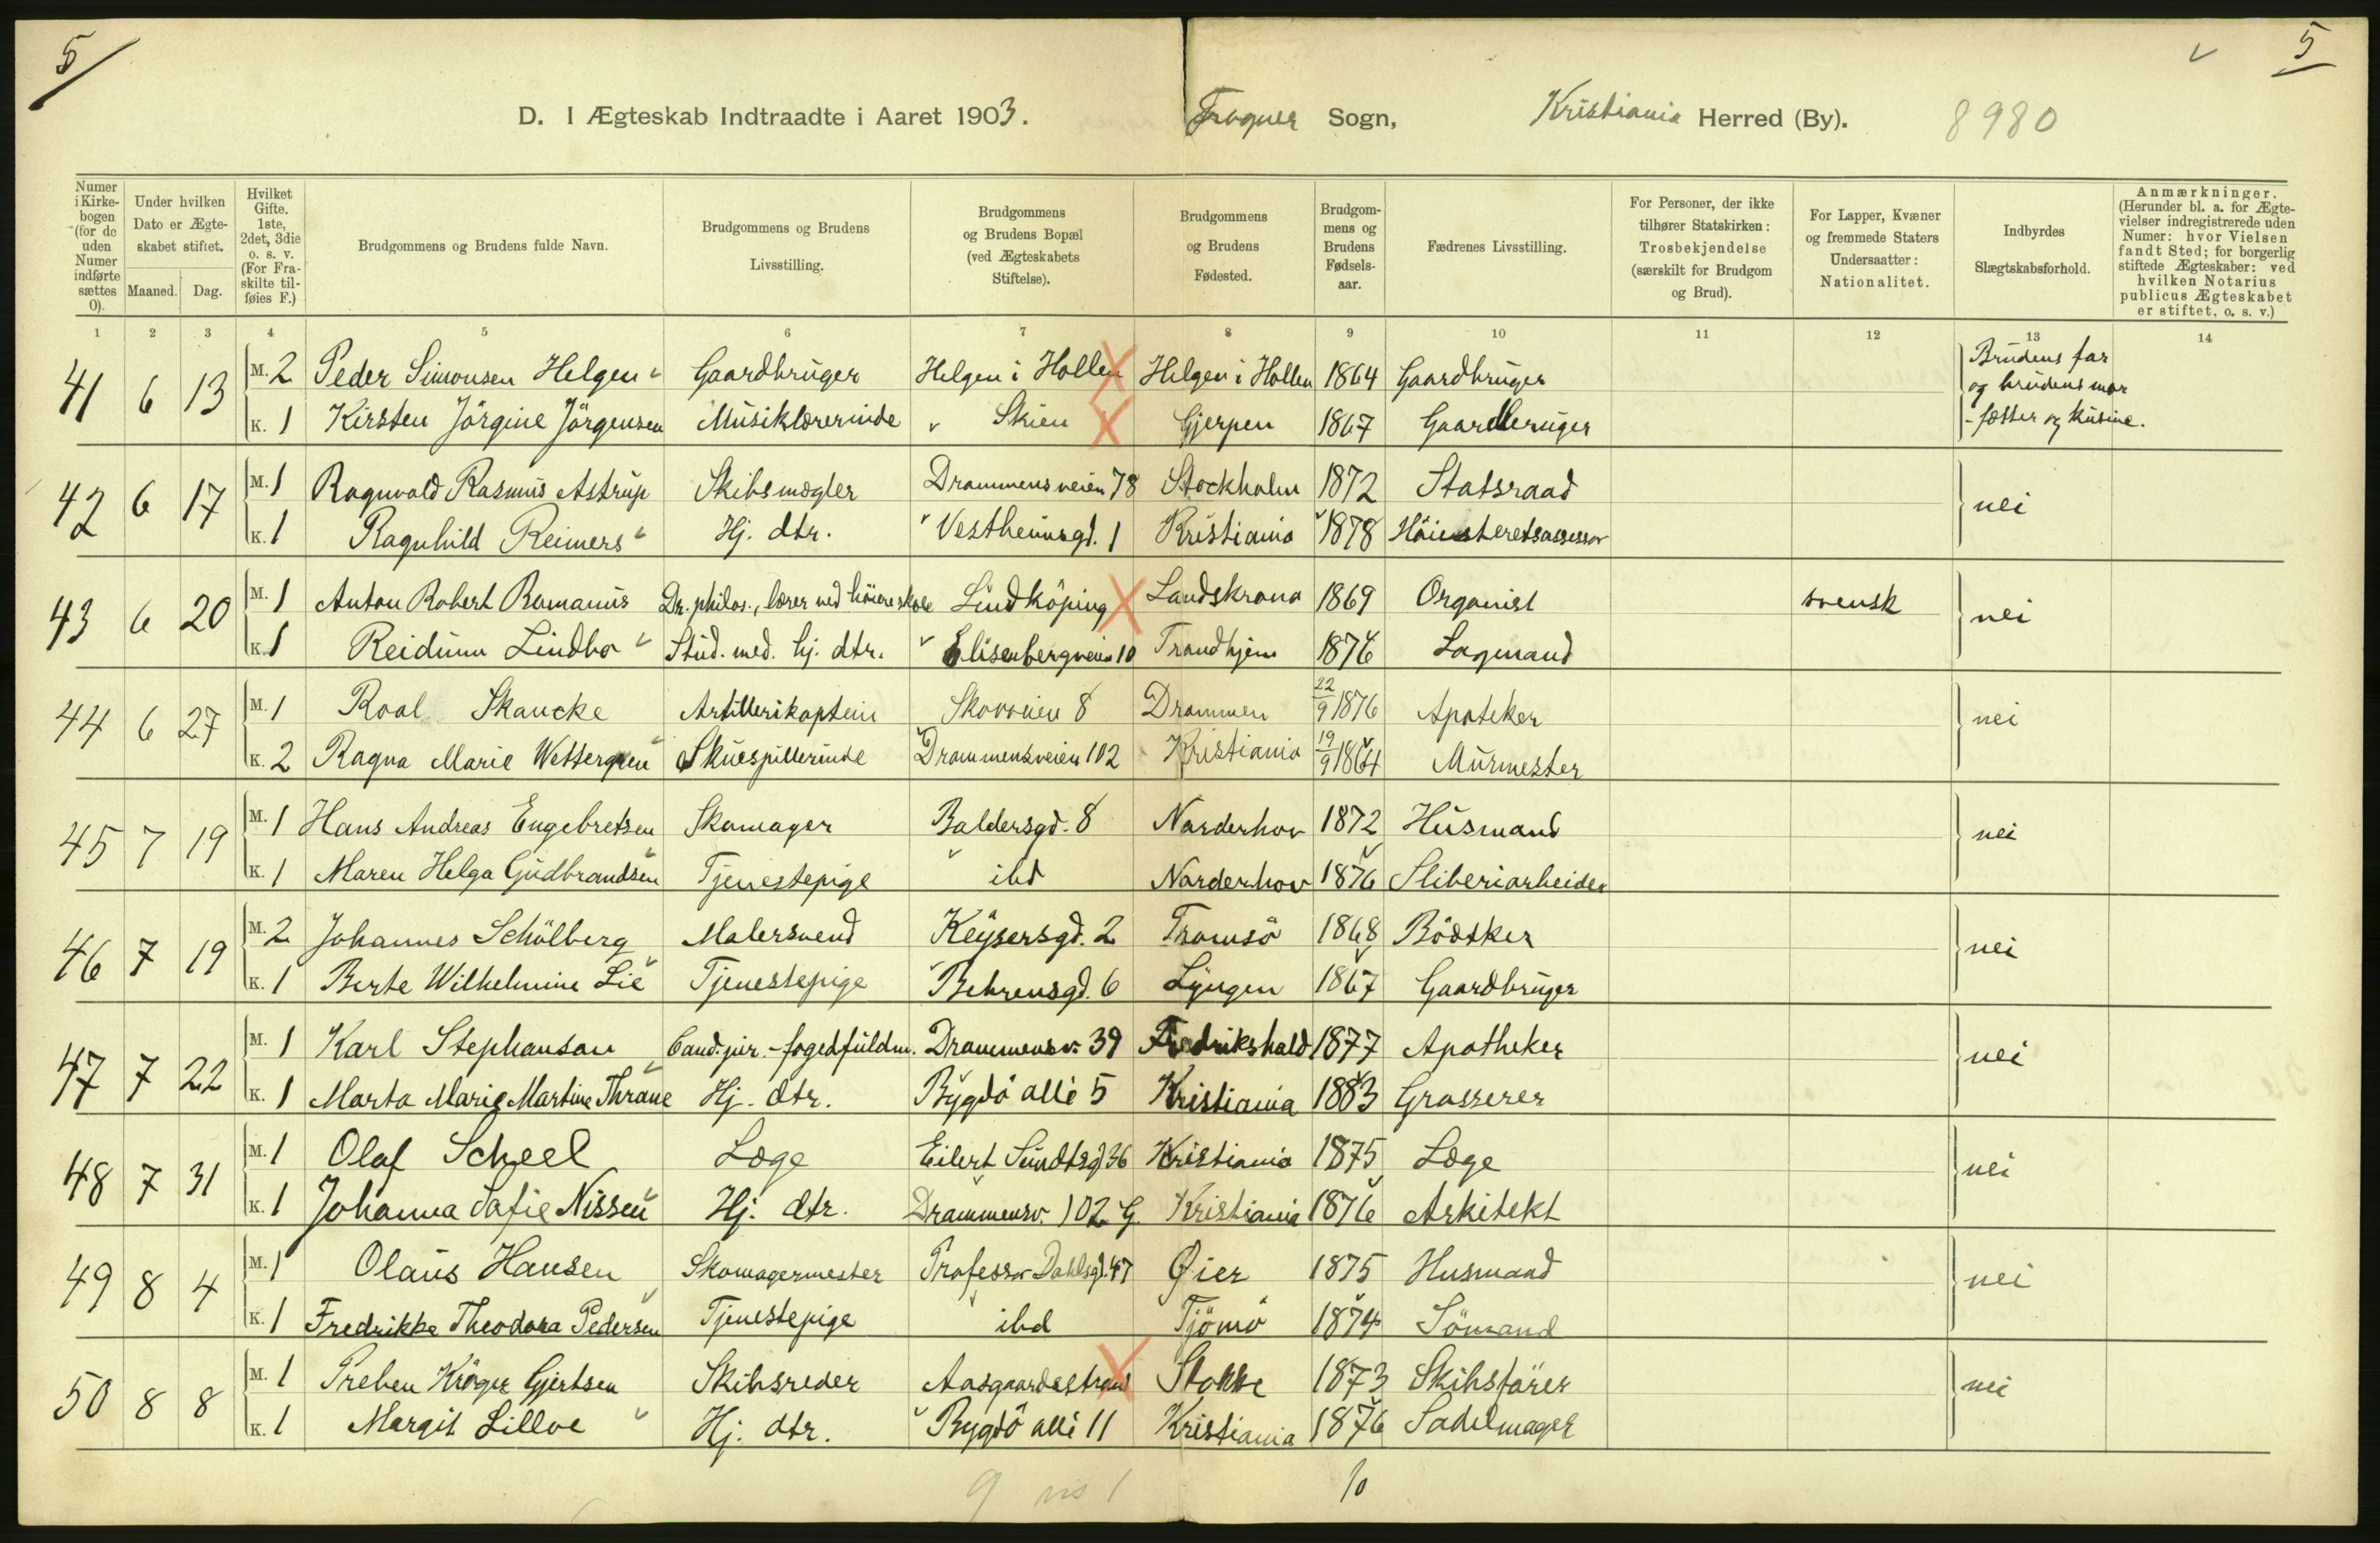 5
✓ 5
D. I Ægteskab Indtraadte i Aaret 1903. Frogner Sogn, Kristiania Herred (By). 8980
Numer i Kirkebogen (for de uden Numer indførte sættes 0).
Under hvilken Dato er Ægteskabet stiftet.
Maaned. Dag.
Hvilket Gifte. 1ste, 2det, 3die o. s. v. (For Fraskilte tilføies F.)
Brudgommens og Brudens fulde Navn.
Brudgommens og Brudens Livsstilling.
Brudgommens og Brudens Bopæl (ved Ægteskabets Stiftelse).
Brudgommens og Brudens Fødested.
Brudgommens og Brudens Fødselsaar.
Fædrenes Livsstilling.
For Personer, der ikke tilhører Statskirken: Trosbekjendelse (særskilt for Brudgom og Brud).
For Lapper, Kvæner og fremmede Staters Undersaatter: Nationalitet.
Indbyrdes Slægtskabsforhold.
Anmærkninger. (Herunder bl. a. for Ægtevielser indregistrerede uden Numer: hvor Vielsen fandt Sted; for borgerlig stiftede Ægteskaber: ved hvilken Notarius publicus Ægteskabet er stiftet, o. s. v.)
1 2 3 4 5 6 7 8 9 10 11 12 13 14
41 6 13 M. 2 Peder Simonsen Helgen Gaardbruger Helgen i Hollen Helgen i Hollen 1864 Gaardbruger Brudens far og brudens mor - fætter og kusine.
K. 1 Kirsten Jörgine Jörgensen Musiklærerinde Skien Gjerpen 1867 Gaardbruger
42 6 17 M. 1 Ragnvald Rasmus Astrup Skibsmægler Drammensveien 78 Stockholm 1872 Statsraad nei
K. 1 Ragnhild Reimers Hj. dtr. Vestheimsgd. 1 Kristiania 1878 Höiesteretsassessor
43 6 20 M. 1 Anton Robert Romanus Dr. philos., lærer ved höiere skole Lindköping Landskrona 1869 Organist svensk nei
K. 1 Reidunn Lindbo Stud. med. hj. dtr. Elisenbergveien 10 Trondhjem 1876 Lagmand
44 6 27 M. 1 Roal Skancke Artillerikaptein Skovveien 8 Drammen 22/9 1876 Apoteker nei
K. 2 Ragna Marie Wettergren Skuespillerinde Drammensveien 102 Kristiania 19/9 1864 Murmester
45 7 19 M. 1 Hans Andreas Engebretsen Skomager Baldersgd. 8 Norderhov 1872 Husmand nei
K. 1 Maren Helga Gudbrandsen Tjenestepige ibd Norderhov 1876 Sliberiarbeider
46 7 19 M. 2 Johannes Schölberg Malersvend Keysersgd. 2 Tromsö 1868 Bödtker nei
K. 1 Berte Wilhelmine Lie Tjenestepige Behrensgd. 6 Lyngen 1867 Gaardbruger
47 7 22 M. 1 Karl Stephanson Cand. jur. - fogedfuldm. Drammensv. 39 Fredrikshald 1877 Apotheker nei
K. 1 Marta Marie Martine Thrane Hj. dtr. Bygdö allé 5 Kristiania 1883 Grosserer
48 7 31 M. 1 Olaf Scheel Læge Eilert Sundtsgd. 36 Kristiania 1875 Læge nei
K. 1 Johanna Sofie Nissen Hj. dtr. Drammensv. 102 G. Kristiania 1876 Arkitekt
49 8 4 M. 1 Olaus Hansen Skomagermester Professor Dahlsgd. 47 Øier 1875 Husmand nei
K. 1 Fredrikke Theodora Pedersen Tjenestepige ibd Tjömö 1874 Sömand
50 8 8 M. 1 Preben Kröger Gjertsen Skibsreder Aasgaardsstrand Stokke 1873 Skibsförer nei
K. 1 Margit Lilloe Hj. dtr. Bygdö allé 11 Kristiania 1876 Sadelmager
9 1 10